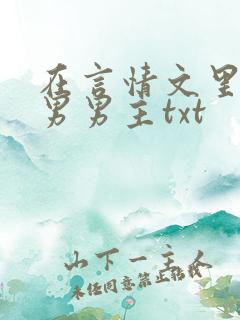 在言情文里
男男主txt
山下一主人
未经同意禁止转载